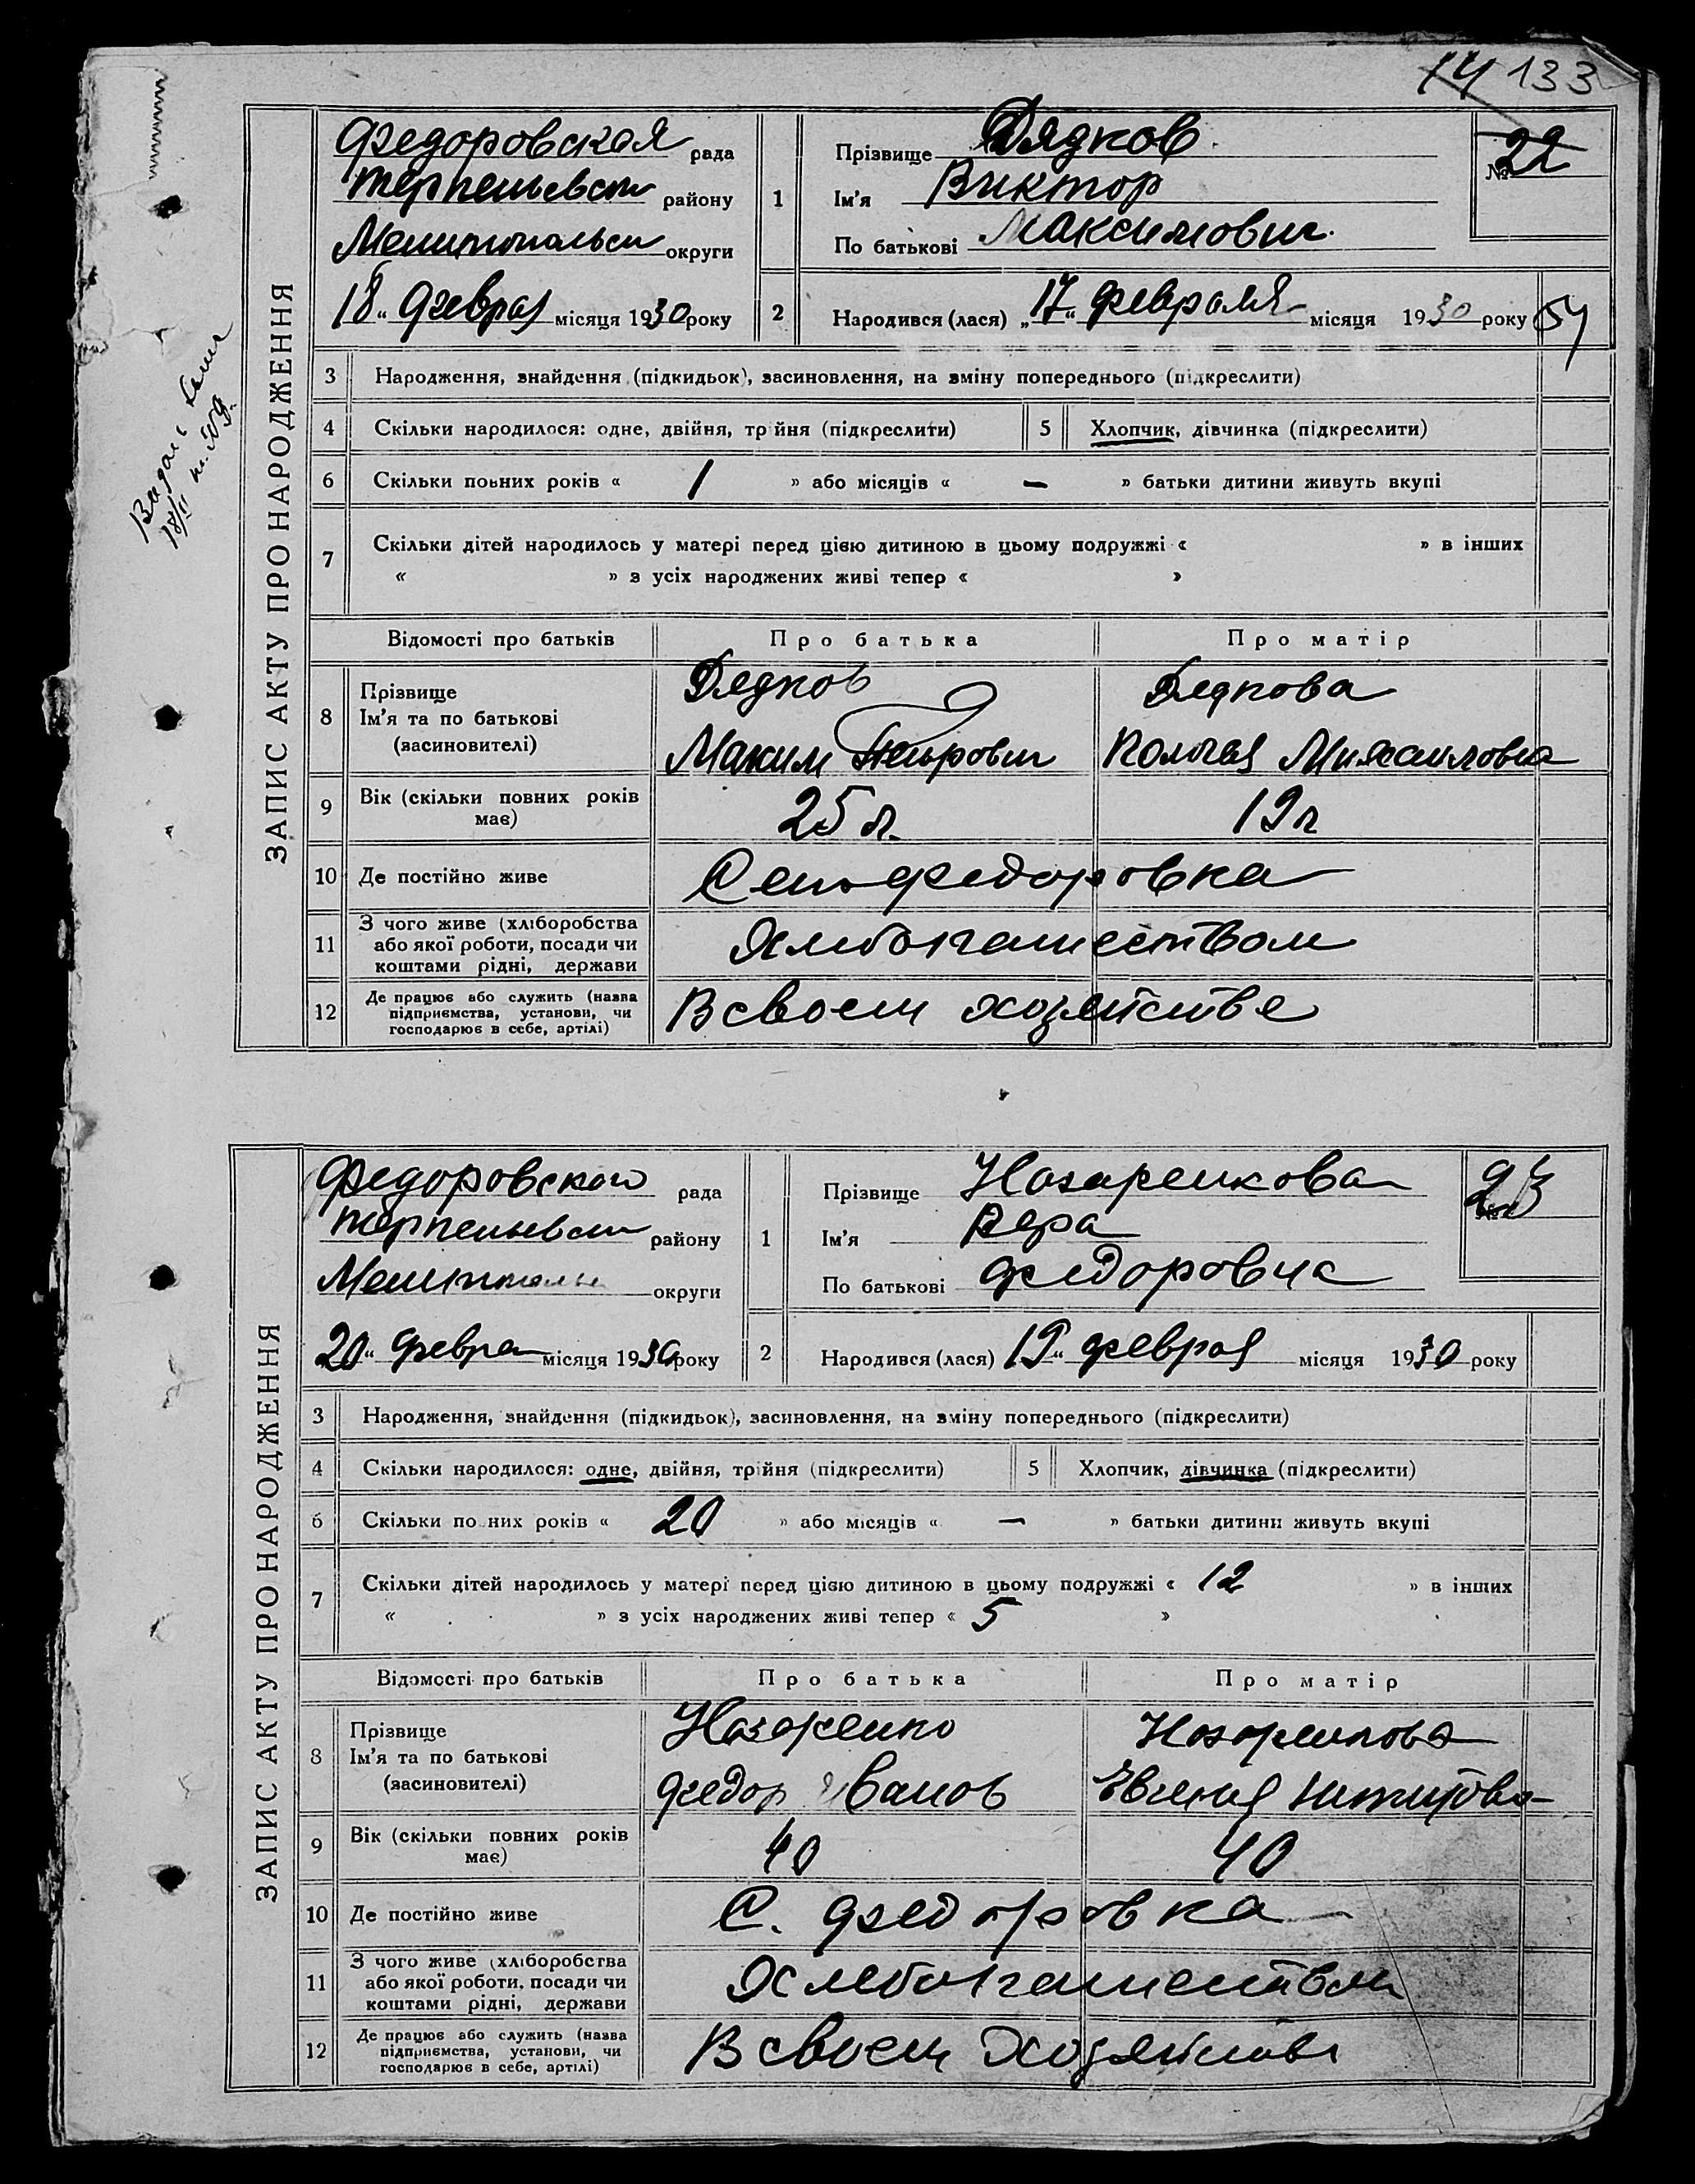 14 133
ЗАПИС АКТУ ПРО НАРОДЖЕННЯ
Федоровская рада
Терпеньевск району
Мелитопольск округи
18 " Феврал місяця 1930 року
1
Прізвище Дядков
Ім'я Виктор
По батькові Максимович.
№ 22
2
Народився (лася) „ 17 " февраля місяця 1930 року
3 Народження, знайдення (підкидьок), засиновлення, на зміну попереднього (підкреслити)
4 Скільки народилося: одне, двійня, трійня (підкреслити)
5 Хлопчик, дівчинка (підкреслити)
6 Скільки повних років « 1 » або місяців « — » батьки дитини живуть вкупі
7 Скільки дітей народилось у матері перед цією дитиною в цьому подружжі « » в інших
« » з усіх народжених живі тепер « »
Відомості про батьків Про батька Про матір
8 Прізвище Дядков Дядкова
Ім'я та по батькові
(засиновителі) Максим Петрович Михайловна
9 Вік (скільки повних років має) 25 л. 19 л
10 Де постійно живе Село Федоровка
11 З чого живе (хліборобства
або якої роботи, посади чи
коштами рідні, держави Хлебопашеством
12 Де працює або служить (назва
підприємства, установи, чи
господарює в себе, артілі) В своем хозяйстве
ЗАПИС АКТУ ПРО НАРОДЖЕННЯ
Федоровской рада
Терпеньевск району
Мелитополь округи
20 " Февра місяця 1930 року
1
Прізвище Назаренкова
Ім'я Вера
По батькові Федоровна
№ 23
2
Народився (лася) 19 " феврал місяця 1930 року
3 Народження, знайдення (підкидьок), засиновлення, на зміну попереднього (підкреслити)
4 Скільки народилося: одне, двійня, трійня (підкреслити)
5 Хлопчик, дівчинка (підкреслити)
6 Скільки повних років « 20 » або місяців « — » батьки дитини живуть вкупі
7 Скільки дітей народилось у матері перед цією дитиною в цьому подружжі « 12 » в інших
« » з усіх народжених живі тепер « 5 »
Відомості про батьків Про батька Про матір
8 Прізвище Назаренко Назаренкова
Ім'я та по батькові
(засиновителі) Федор Иванов Евгения
9 Вік (скільки повних років має) 40 40
10 Де постійно живе С. Федоровка
11 З чого живе (хліборобства
або якої роботи, посади чи
коштами рідні, держави Хлебопашеством
12 Де працює або служить (назва
підприємства, установи, чи
господарює в себе, артілі) В своем хозяйстве